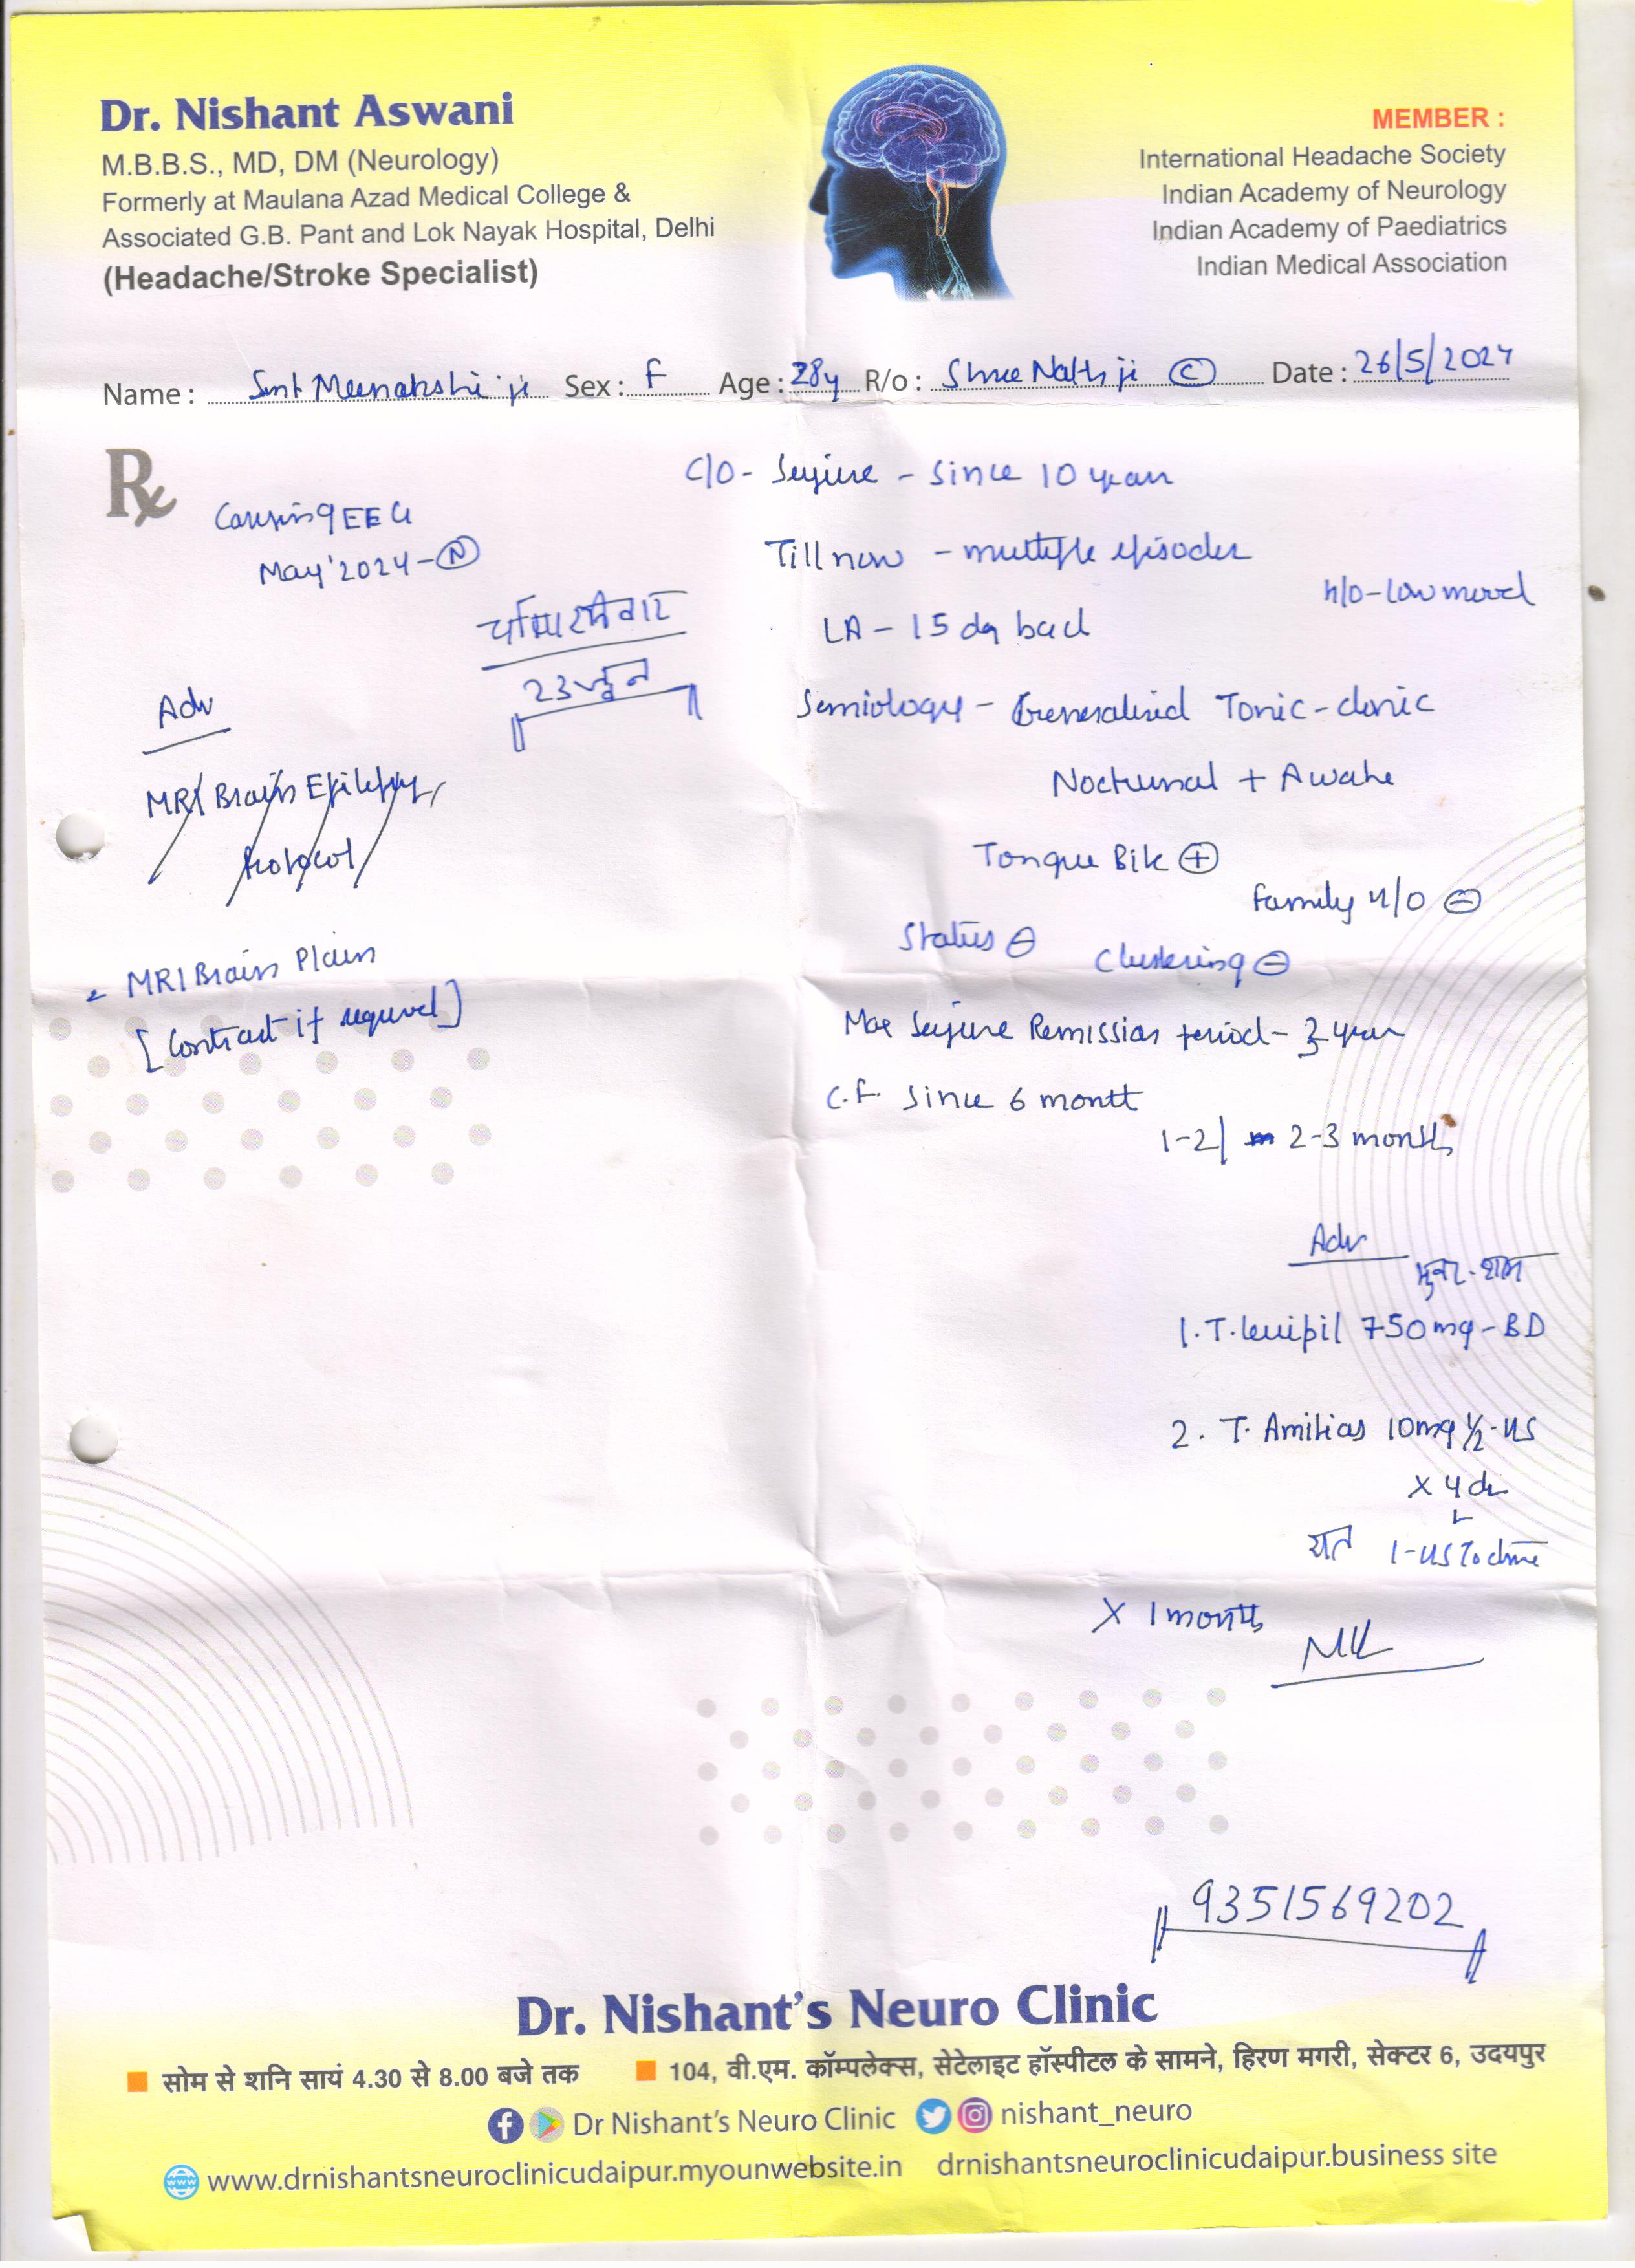 Dr. Nishant Aswani
M.B.B.S., MD, DM (Neurology)
Formerly at Maulana Azad Medical College &
Associated G.B. Pant and Lok Nayak Hospital, Delhi
(Headache/Stroke Specialist)
MEMBER :
International Headache Society
Indian Academy of Neurology
Indian Academy of Paediatrics
Indian Medical Association
Name : Smt Meenakshi ji Sex : F Age : 28y R/o : Shree Nathji © Date : 26/5/2024
Rx
EEG
May'2024 - Ⓝ
23 जून
Adv
MRI Brain Epilepsy
Protocol
MRI Brain Plain
[Contrast if required]
C/O - Seizure - Since 10 year
Till now - multiple episodes
H/O - Low mood
LA - 15 day back
Semiology - Generalised Tonic-clonic
Nocturnal + Awake
Tongue Bite ⊕
Family H/O ⊖
Status ⊖ Clustering ⊖
Max Seizure Remission period - 3 year
C.F. Since 6 month
1-2/ 2-3 months
Adv
सुबह - शाम
1. T. Levipil 750mg - BD
2. T. 10mg ½ - HS
x 4 d
1 - HS
x 1 month
9351569202
Dr. Nishant's Neuro Clinic
सोम से शनि सायं 4.30 से 8.00 बजे तक
104, वी.एम. कॉम्पलेक्स, सेटेलाइट हॉस्पीटल के सामने, हिरण मगरी, सेक्टर 6, उदयपुर
Dr Nishant's Neuro Clinic nishant_neuro
www.drnishantsneuroclinicudaipur.myounwebsite.in drnishantsneuroclinicudaipur.business site